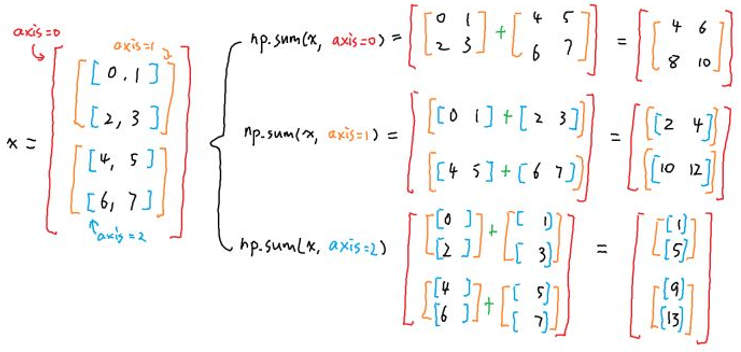 axis=0
axis=1
x = [[[0, 1]
[2, 3]]
[[4, 5]
[6, 7]]]
axis=2
np.sum(x, axis=0) = [[0 1 + 4 5 = [[4 6
2 3] 6 7]] 8 10]]
np.sum(x, axis=1) = [[[0 1] + [2 3]] = [[[2 4]]
[[4 5] + [6 7]]] [[10 12]]]
np.sum(x, axis=2) [[[0 ] + [ 1] = [[[1]
[2 ]] [ 3]] [5]]
[[4 ] + [ 5] [[9]
[6 ]] [ 7]]] [13]]]